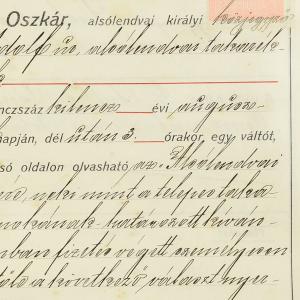 Oszkár, alsólendvai királyi közjegyző
dolf úr, alsólendvai takarék-
nczszáz kilencz évi augusz-
napján, dél után 3. órakor, egy váltót,
só oldalon olvasható az Alsólendvai
mint a telepes taka
nokának határozott kiván-
ban fizetés végett személyesen
a következő választ nyer-